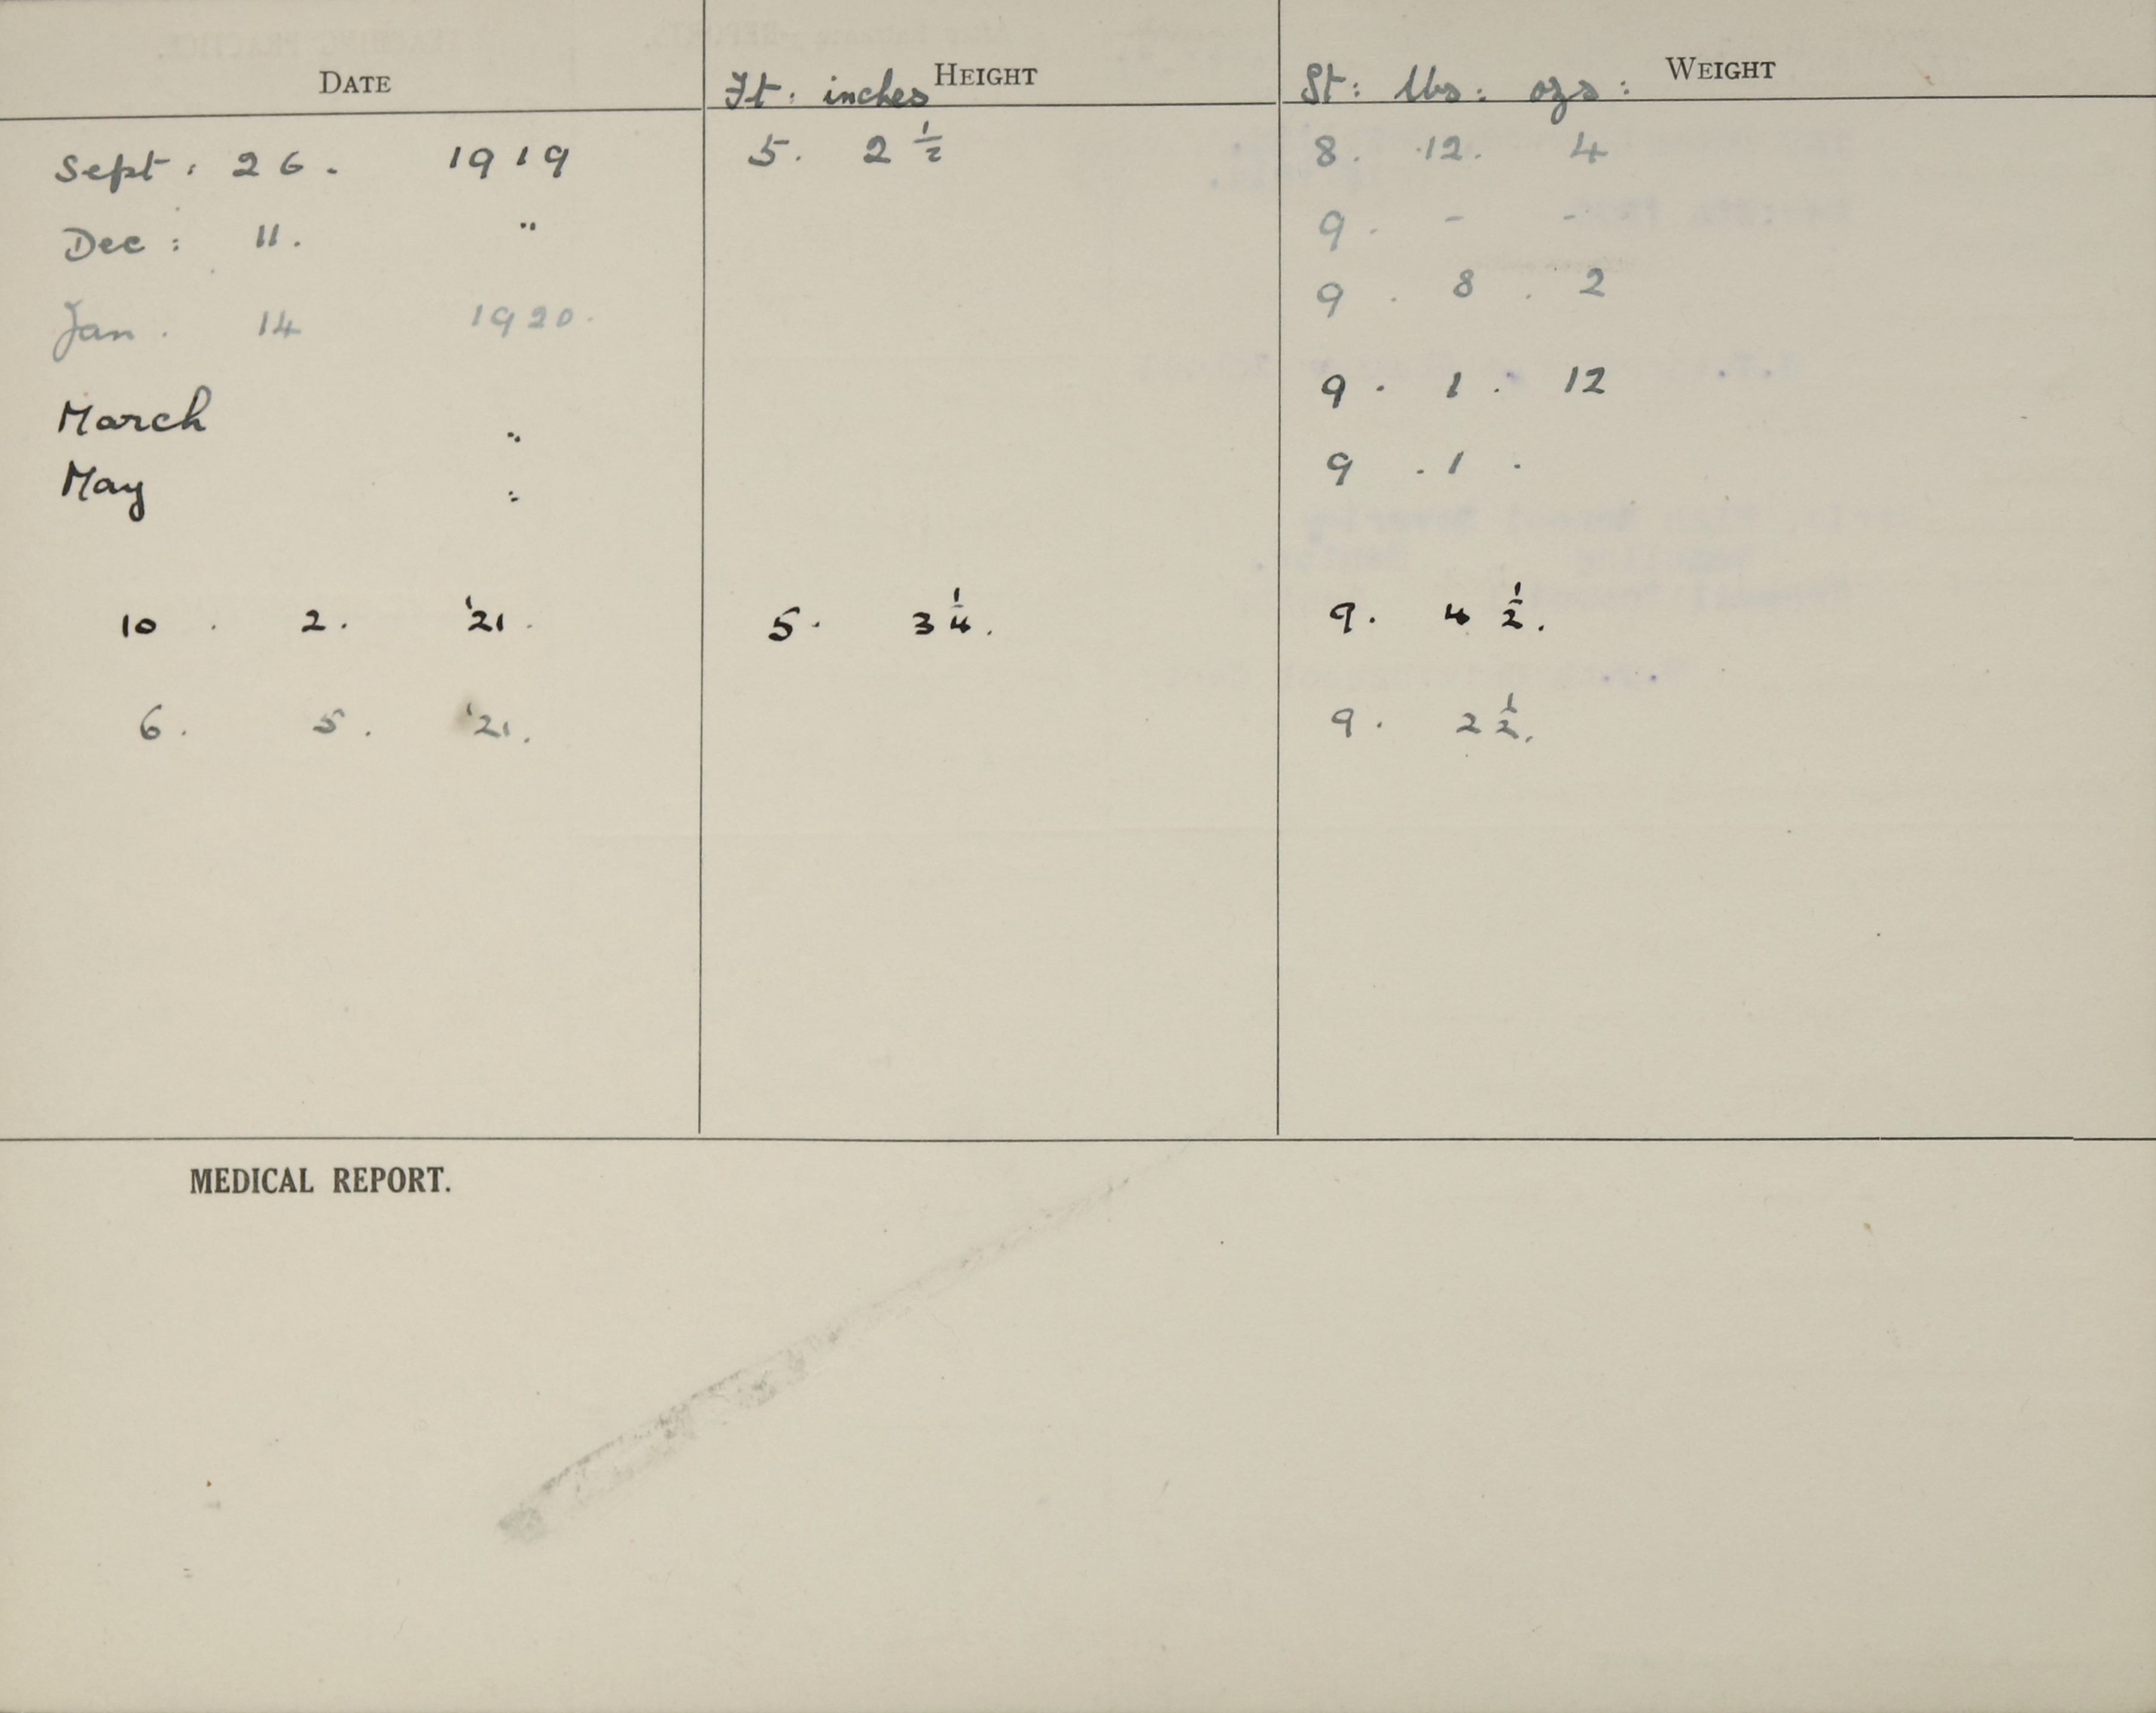 DATE Ft: inches HEIGHT St: lbs: ozs: WEIGHT
Sept: 26. 1919 5. 2 1/2 8. 12. 4
Dec: 11. " 9. - -
Jan. 14 1920. 9. 8. 2
March " 9. 1. 12
May " 9. 1.
10. 2. '21. 5. 3 1/4. 9. 4 1/2.
6. 5. '21. 9. 2 1/2.
MEDICAL REPORT.